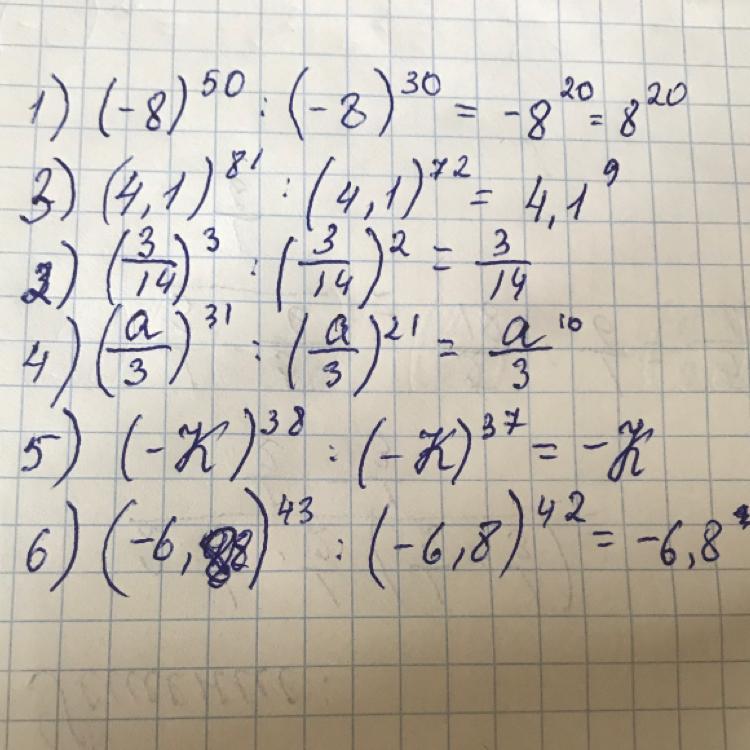 1) (-8)^50 : (-8)^30 = -8^20 = 8^20
3) (4,1)^81 : (4,1)^72 = 4,1^9
2) (3/14)^3 : (3/14)^2 = 3/14
4) (a/3)^31 : (a/3)^21 = a^10/3
5) (-K)^38 : (-K)^37 = -K
6) (-6,8)^43 : (-6,8)^42 = -6,8